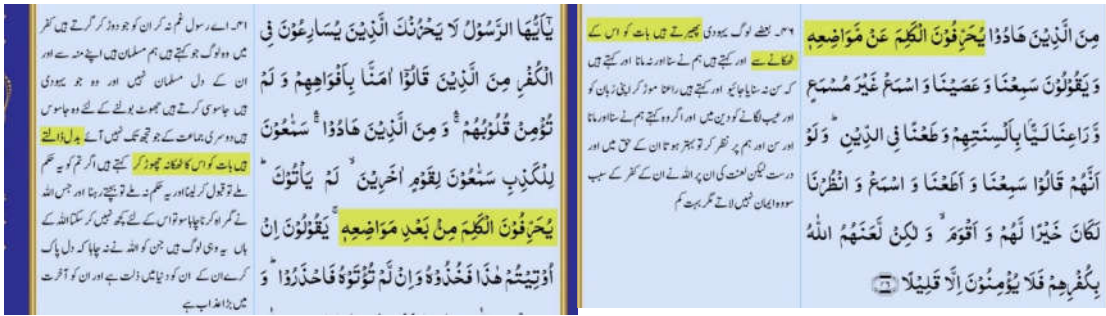 مِنَ الَّذِيْنَ هَادُوْا يُحَرِّفُوْنَ الْكَلِمَ عَنْ مَّوَاضِعِهٖ
وَ يَقُوْلُوْنَ سَمِعْنَا وَ عَصَيْنَا وَ اسْمَعْ غَيْرَ مُسْمَعٍ
وَّ رَاعِنَا لَيًّۢا بِاَلْسِنَتِهِمْ وَ طَعْنًا فِى الدِّيْنِ ؕ وَ لَوْ
اَنَّهُمْ قَالُوْا سَمِعْنَا وَ اَطَعْنَا وَ اسْمَعْ وَ انْظُرْنَا
لَكَانَ خَيْرًا لَّهُمْ وَ اَقْوَمَ ۙ وَ لٰكِنْ لَّعَنَهُمُ اللّٰهُ
بِكُفْرِهِمْ فَلَا يُؤْمِنُوْنَ اِلَّا قَلِيْلًا ﴿۴۶﴾
۴۶۔ بعضے لوگ یہودی پھیرتے ہیں بات کو اس کے
ٹھکانے سے اور کہتے ہیں ہم نے سنا اور نہ مانا اور کہتے ہیں
کہ سن نہ سنایا جائیو اور کہتے ہیں راعنا موڑ کر اپنی زبان کو
اور عیب لگانے کو دین میں اور اگر وہ کہتے ہم نے سنا اور مانا
اور سن اور ہم پر نظر کر تو بہتر ہوتا ان کے حق میں اور
درست لیکن لعنت کی ان پر اللہ نے ان کے کفر کے سبب
سو وہ ایمان نہیں لاتے مگر بہت کم
يٰۤاَيُّهَا الرَّسُوْلُ لَا يَحْزُنْكَ الَّذِيْنَ يُسَارِعُوْنَ فِى
الْكُفْرِ مِنَ الَّذِيْنَ قَالُوْۤا اٰمَنَّا بِاَفْوَاهِهِمْ وَ لَمْ
تُؤْمِنْ قُلُوْبُهُمْ ۛۚ وَ مِنَ الَّذِيْنَ هَادُوْا ۛۚ سَمّٰعُوْنَ
لِلْكَذِبِ سَمّٰعُوْنَ لِقَوْمٍ اٰخَرِيْنَ ۙ لَمْ يَاْتُوْكَ ؕ
يُحَرِّفُوْنَ الْكَلِمَ مِنْۢ بَعْدِ مَوَاضِعِهٖ ۚ يَقُوْلُوْنَ اِنْ
اُوْتِيْتُمْ هٰذَا فَخُذُوْهُ وَ اِنْ لَّمْ تُؤْتَوْهُ فَاحْذَرُوْا ؕ وَ
۴۱۔ اے رسول غم نہ کر ان کو جو دوڑ کر گرتے ہیں کفر
میں وہ لوگ جو کہتے ہیں ہم مسلمان ہیں اپنے منہ سے اور
ان کے دل مسلمان نہیں اور وہ جو یہودی
ہیں جاسوسی کرتے ہیں جھوٹ بولنے کے لئے وہ جاسوس
ہیں دوسری جماعت کے جو تجھ تک نہیں آئے بدل ڈالتے
ہیں بات کو اس کا ٹھکانہ چھوڑ کر کہتے ہیں اگر تم کو یہ حکم
ملے تو قبول کر لینا اور یہ حکم نہ ملے تو بچتے رہنا اور جس اللہ
نے گمراہ کرنا چاہا سو تو اس کے لئے کچھ نہیں کر سکتا اللہ کے
ہاں یہ وہی لوگ ہیں جن کو اللہ نے نہ چاہا کہ دل پاک
کرے ان کے ان کو دنیا میں ذلت ہے اور ان کو آخرت
میں بڑا عذاب ہے